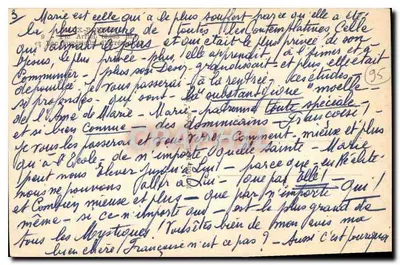 3 Marie est celle qui a le plus souffert parce qu'elle a été
la plus pauvre de toutes les Contemplatives, Celle
qui aimait le plus et que était le plus privée de
Jésus, le plus privée – plus, elle apprenait à L'aimer et y
Communier – plus son Désir grandissait et plus elle était
dépouillée, et vous passerez à la rentrée, les études (95
si profondes – que sont la substantifique moelle –
de l'Ame de Marie – Marie – patrimoine toute spéciale –
et si bien comme – des dominicains – Françoise !
je vous les passerai toujours. Comment, mieux et plus
qu'à l'école – de n'importe quelle Sainte – Marie
peut nous élever jusqu'à Lui – parce que – en Réalité –
nous ne pouvons aller à Lui – que par elle ! –
et Combien mieux et plus – que par n'importe – qui !
même – si ce n'importe qui – est le plus grand de
tous les Mystiques ! Vous êtes bien de mon avis ma
bien chère Françoise n'est ce pas ? – Aussi c'est pourquoi